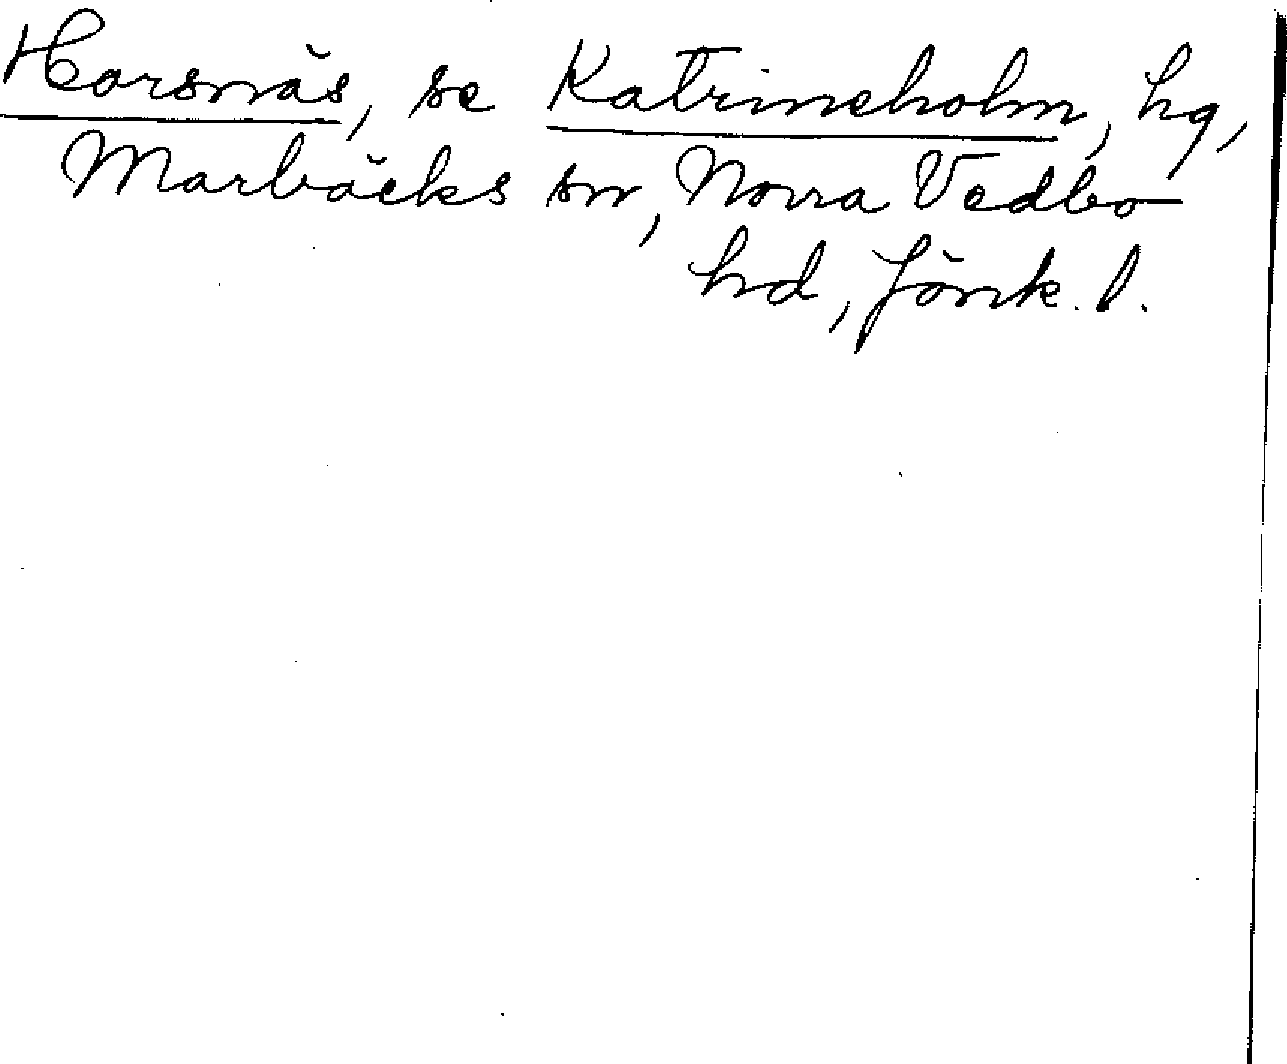 Harsnäs, se Katrineholm, hg,
Marbäcks sn, Norra Vedbo
hd, Jönk. l.